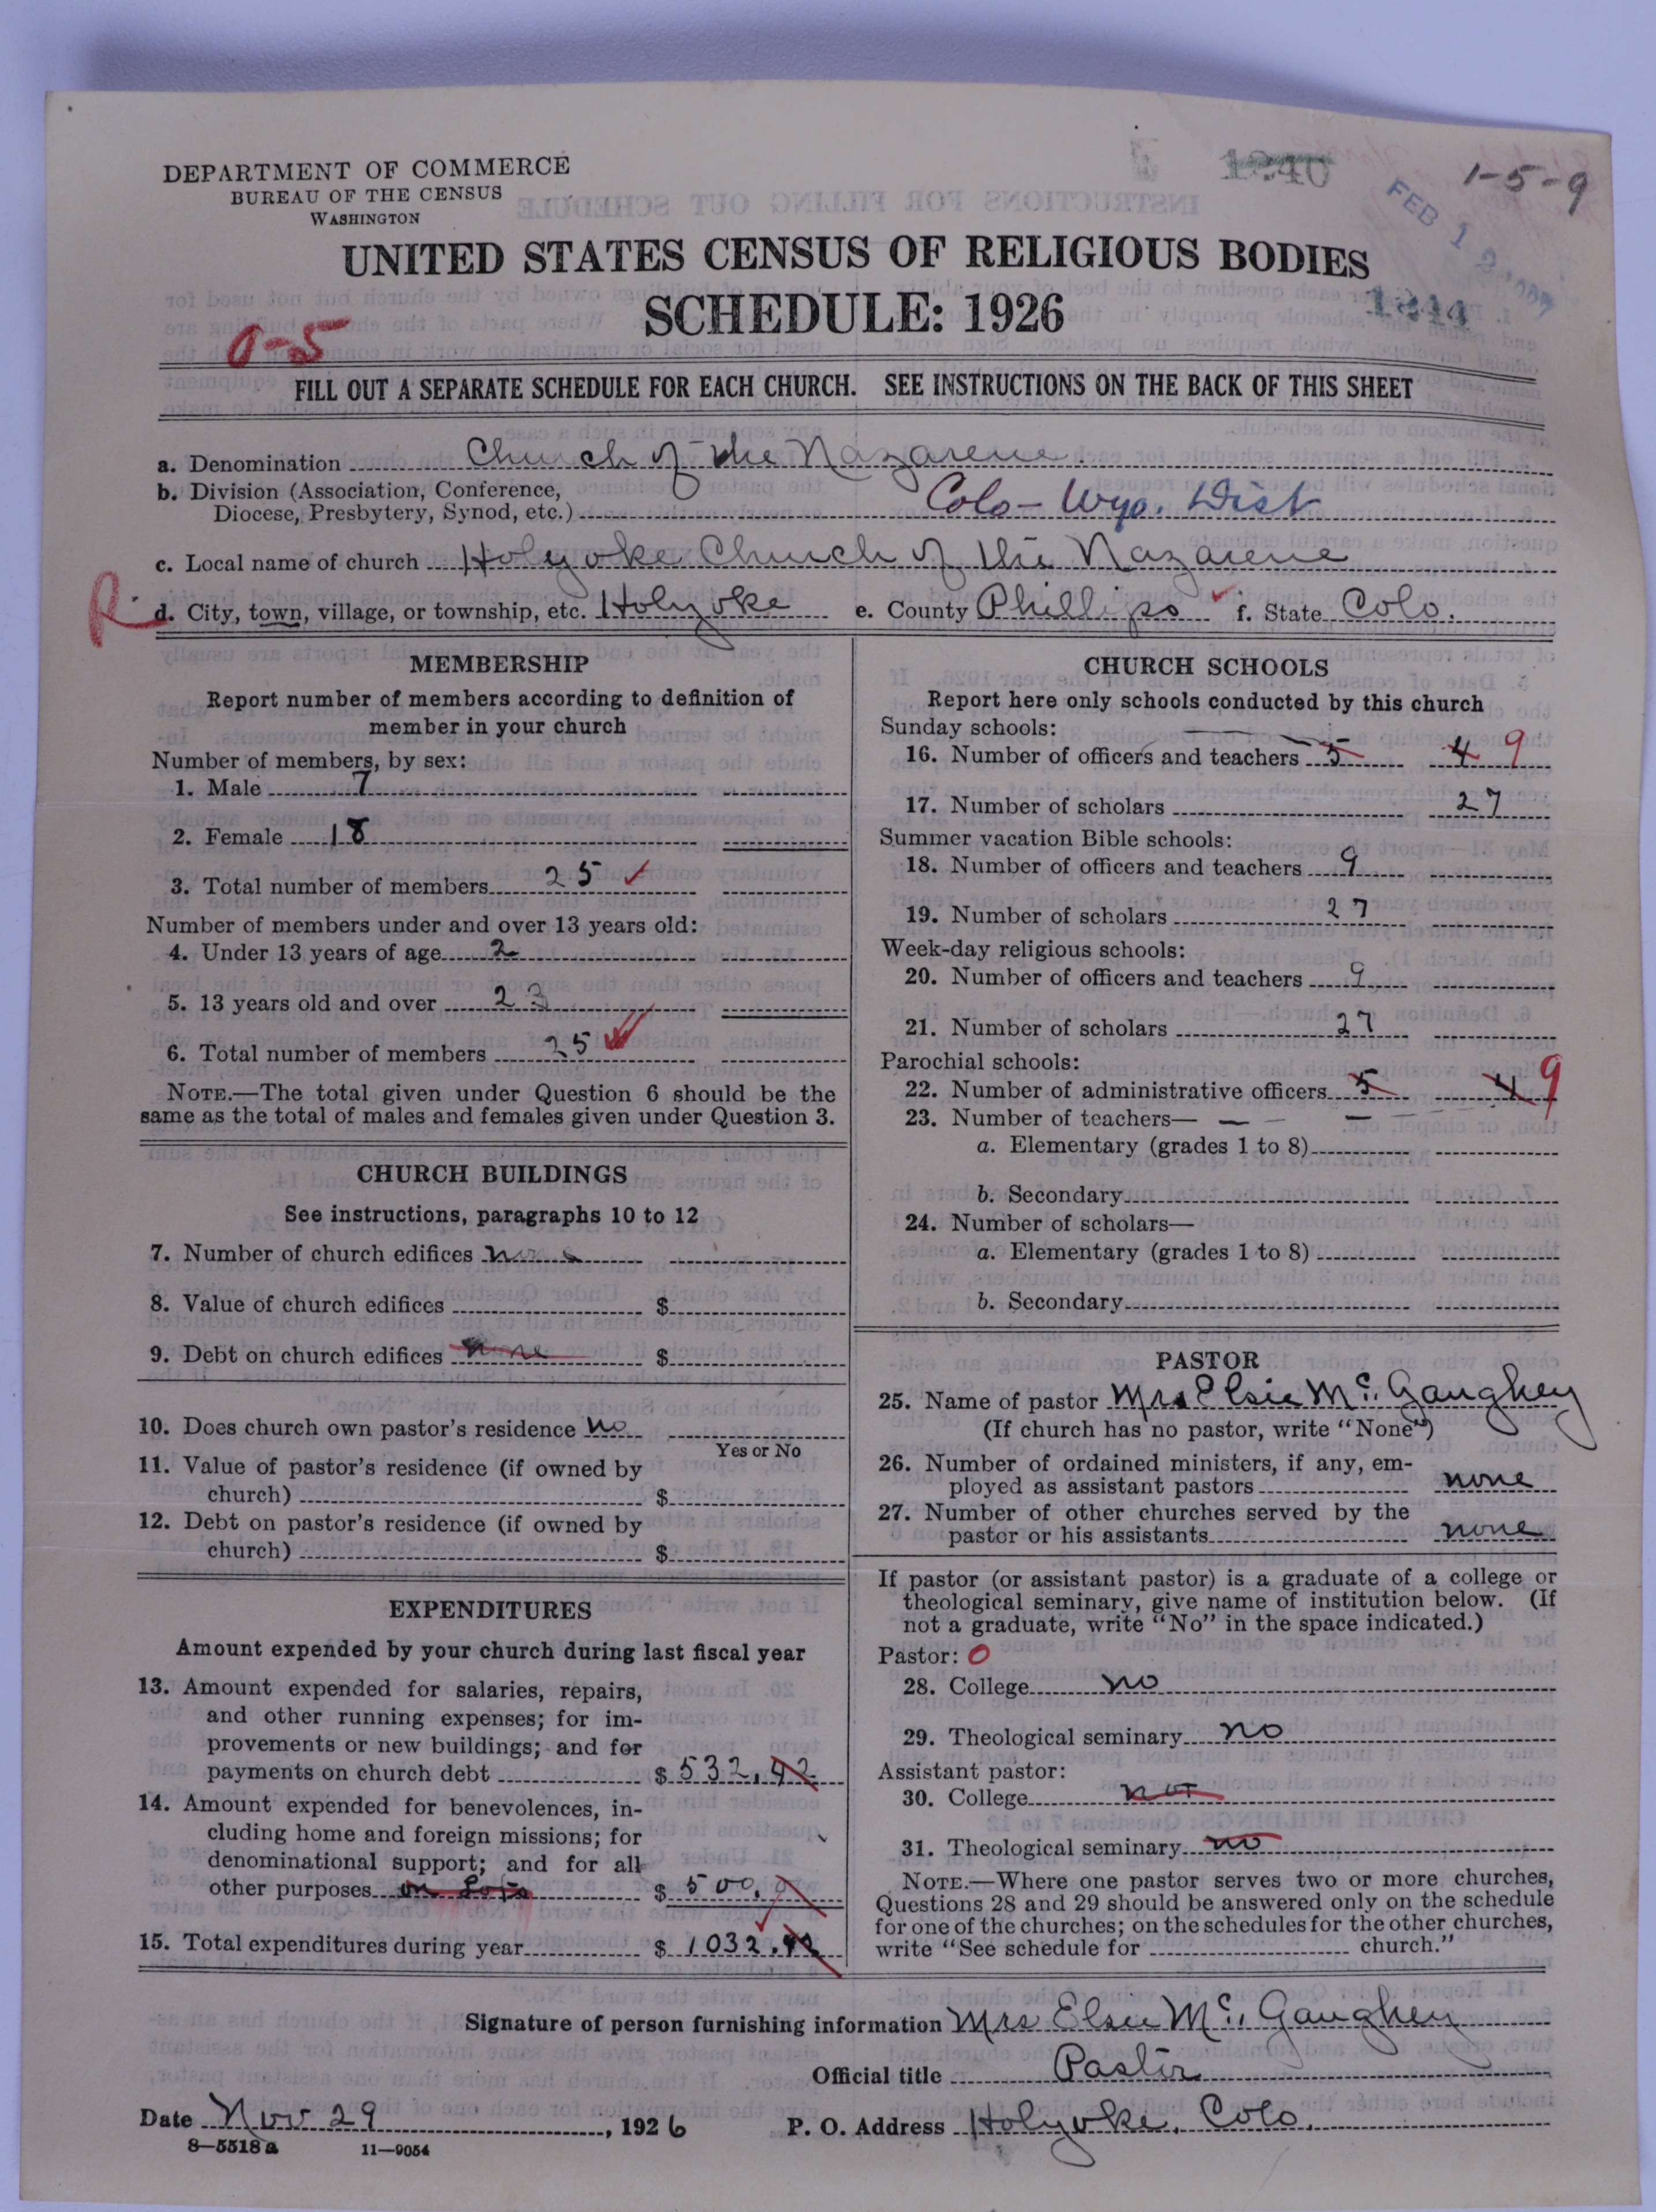 DEPARTMENT OF COMMERCE
BUREAU OF THE CENSUS
WASHINGTON
1-5-9
FEB 1 2
UNITED STATES CENSUS OF RELIGIOUS BODIES
SCHEDULE: 1926
0-5
FILL OUT A SEPARATE SCHEDULE FOR EACH CHURCH. SEE INSTRUCTIONS ON THE BACK OF THIS SHEET
a. Denomination Church of the Nazarene.
b. Division (Association, Conference,
Diocese, Presbytery, Synod, etc.) Colo-Wyo. Dist
c. Local name of church Holyoke Church of the Nazarene
R. d. City, town, village, or township, etc. Holyoke e. County Phillips f. State Colo.
MEMBERSHIP
Report number of members according to definition of
member in your church
Number of members, by sex:
1. Male 7
2. Female 18
3. Total number of members 25
Number of members under and over 13 years old:
4. Under 13 years of age 2
5. 13 years old and over 23
6. Total number of members 25
NOTE.—The total given under Question 6 should be the
same as the total of males and females given under Question 3.
CHURCH BUILDINGS
See instructions, paragraphs 10 to 12
7. Number of church edifices none
8. Value of church edifices $
9. Debt on church edifices none $
10. Does church own pastor's residence no
Yes or No
11. Value of pastor's residence (if owned by
church) $
12. Debt on pastor's residence (if owned by
church) $
EXPENDITURES
Amount expended by your church during last fiscal year
13. Amount expended for salaries, repairs,
and other running expenses; for im-
provements or new buildings; and for
payments on church debt $ 532.42
14. Amount expended for benevolences, in-
cluding home and foreign missions; for
denominational support; and for all
other purposes on Lots $ 500.
15. Total expenditures during year $ 1032.42
CHURCH SCHOOLS
Report here only schools conducted by this church
Sunday schools:
16. Number of officers and teachers 5 4 9
17. Number of scholars 27
Summer vacation Bible schools:
18. Number of officers and teachers 9
19. Number of scholars 27
Week-day religious schools:
20. Number of officers and teachers 9
21. Number of scholars 27
Parochial schools:
22. Number of administrative officers 5 4 9
23. Number of teachers—
a. Elementary (grades 1 to 8)
b. Secondary
24. Number of scholars—
a. Elementary (grades 1 to 8)
b. Secondary
PASTOR
25. Name of pastor Mrs Elsie Mc. Gaughey
(If church has no pastor, write "None")
26. Number of ordained ministers, if any, em-
ployed as assistant pastors none
27. Number of other churches served by the
pastor or his assistants none
If pastor (or assistant pastor) is a graduate of a college or
theological seminary, give name of institution below. (If
not a graduate, write "No" in the space indicated.)
Pastor: 0
28. College no
29. Theological seminary no
Assistant pastor:
30. College not
31. Theological seminary no
NOTE.—Where one pastor serves two or more churches,
Questions 28 and 29 should be answered only on the schedule
for one of the churches; on the schedules for the other churches,
write "See schedule for church."
Signature of person furnishing information Mrs Elsie Mc. Gaughey
Official title Pastor
Date Nov 29, 1926 P. O. Address Holyoke, Colo.
8—5518a 11—9054